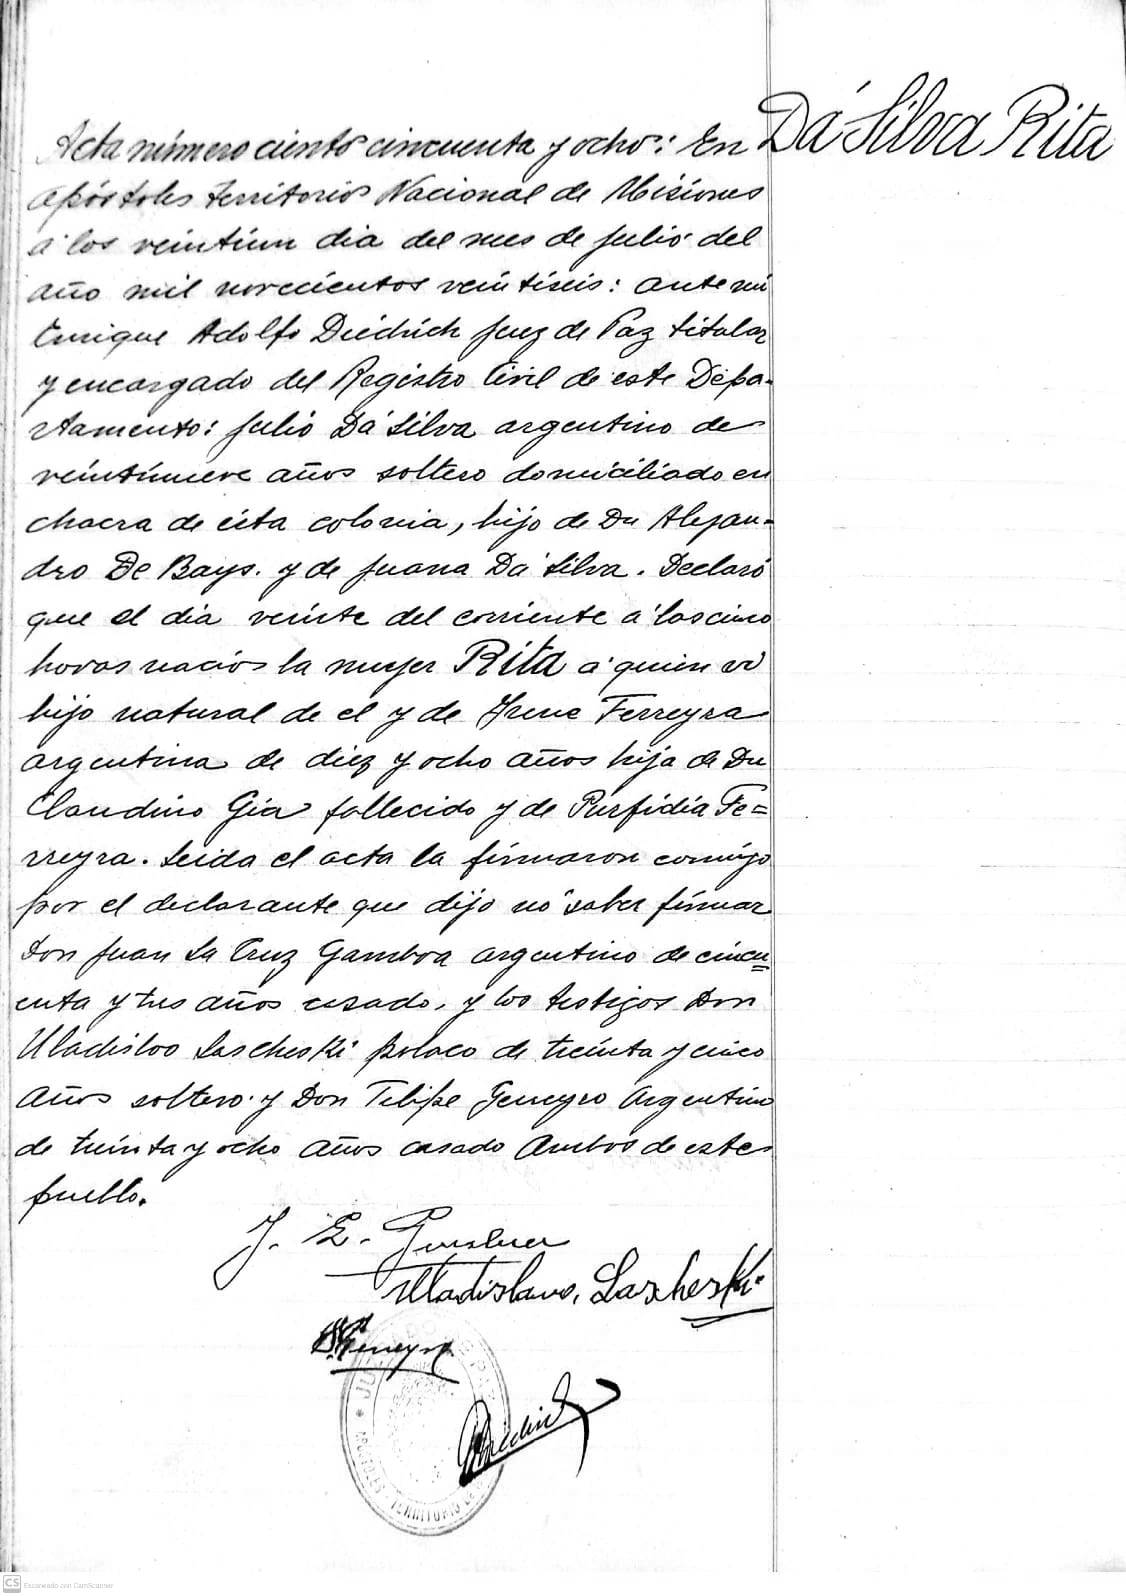 Da Silva Rita
Acta número ciento cincuenta y ocho: En
Apóstoles Territorio Nacional de Misiones
á los veintiun dia del mes de julio del
año mil novecientos veintiseis: ante mi
Enrique Adolfo Diedrich Juez de Paz titular
y encargado del Registro Civil de este Depa-
rtamento: Julio Da Silva argentino de
veintinueve años soltero domiciliado en
chacra de esta colonia, hijo de Dn Alejan-
dro De Bays. y de Juana Da Silva. Declaró
que el dia veinte del corriente á las cinco
horas nació la mujer Rita á quien vi
hijo natural de el y de Irene Ferreyra
argentina de diez y ocho años hija de Dn
Claudino Gia fallecido y de Purfidia Fe=
rreyra. Leida el acta la firmaron conmigo
por el declarante que dijo no saber firmar
Don Juan La Cruz Gamboa argentino de cincu
enta y tres años casado, y los testigos Don
Uladislao Lascheski polaco de treinta y cinco
años soltero y Don Felipe Geneyro Argentino
de treinta y ocho años casado Ambos de este
pueblo.
J.
Uladislavo, Lascheski
Geneyro
Diedrich
APOSTOLES TERRITORIO
CS Escaneado con CamScanner